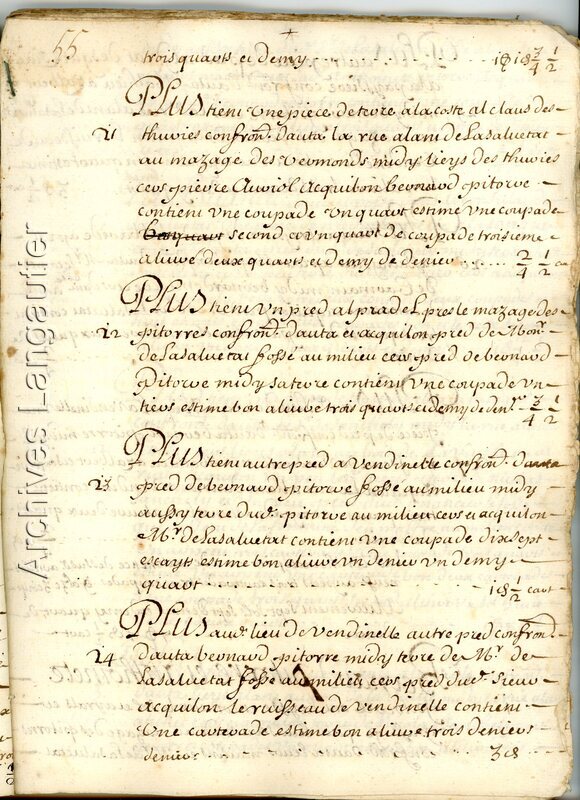 55
trois quarts et demy 1 d 3/4 1/2
PLUS tient Une piece de terre a la coste al claus des
21 thuvies confron. d'auta la rue a lane de Lasaluetat
au mazage des Vermonds midy lieys des thuvies
cers pierre Auriol Acquilon bernard pitorre
contient Une coupade Un quart estime Une coupade
second et un quart de coupade troisieme
a liure deux quarts et demy de denier 2/4 1/2
PLUS tient Un pred al pradel pres le mazage des
22 pitorres confron. d'auta et acquilon pred de Mon.r
de Lasaluetat fossé au milieu cers pred de bernard
pitorre midy sa terre contient Une coupade Un
tiers estime bon a liure trois quarts et demy de den.r 3/4 1/2
PLUS tient autre pred a Vendinelle confron. d'auta
23 pred de bernard pitorre fossé au milieu midy
aussy terre dud. pitorre au milieu cers et acquilon
M.r de Lasaluetat contient une coupade dix sept
escayts estime bon a liure Un denier Un demy
quart 1 d 1/2 cart
PLUS aud. lieu de Vendinelle autre pred confron.
24 d'auta bernard pitorre midy terre de M.r de
Lasaluetat fossé au milieu cers pred dud. sieur
acquilon le ruisseau de Vendinelle contient
Une carterade estime bon a liure trois deniers
deniers 3 d
Archives Langautier